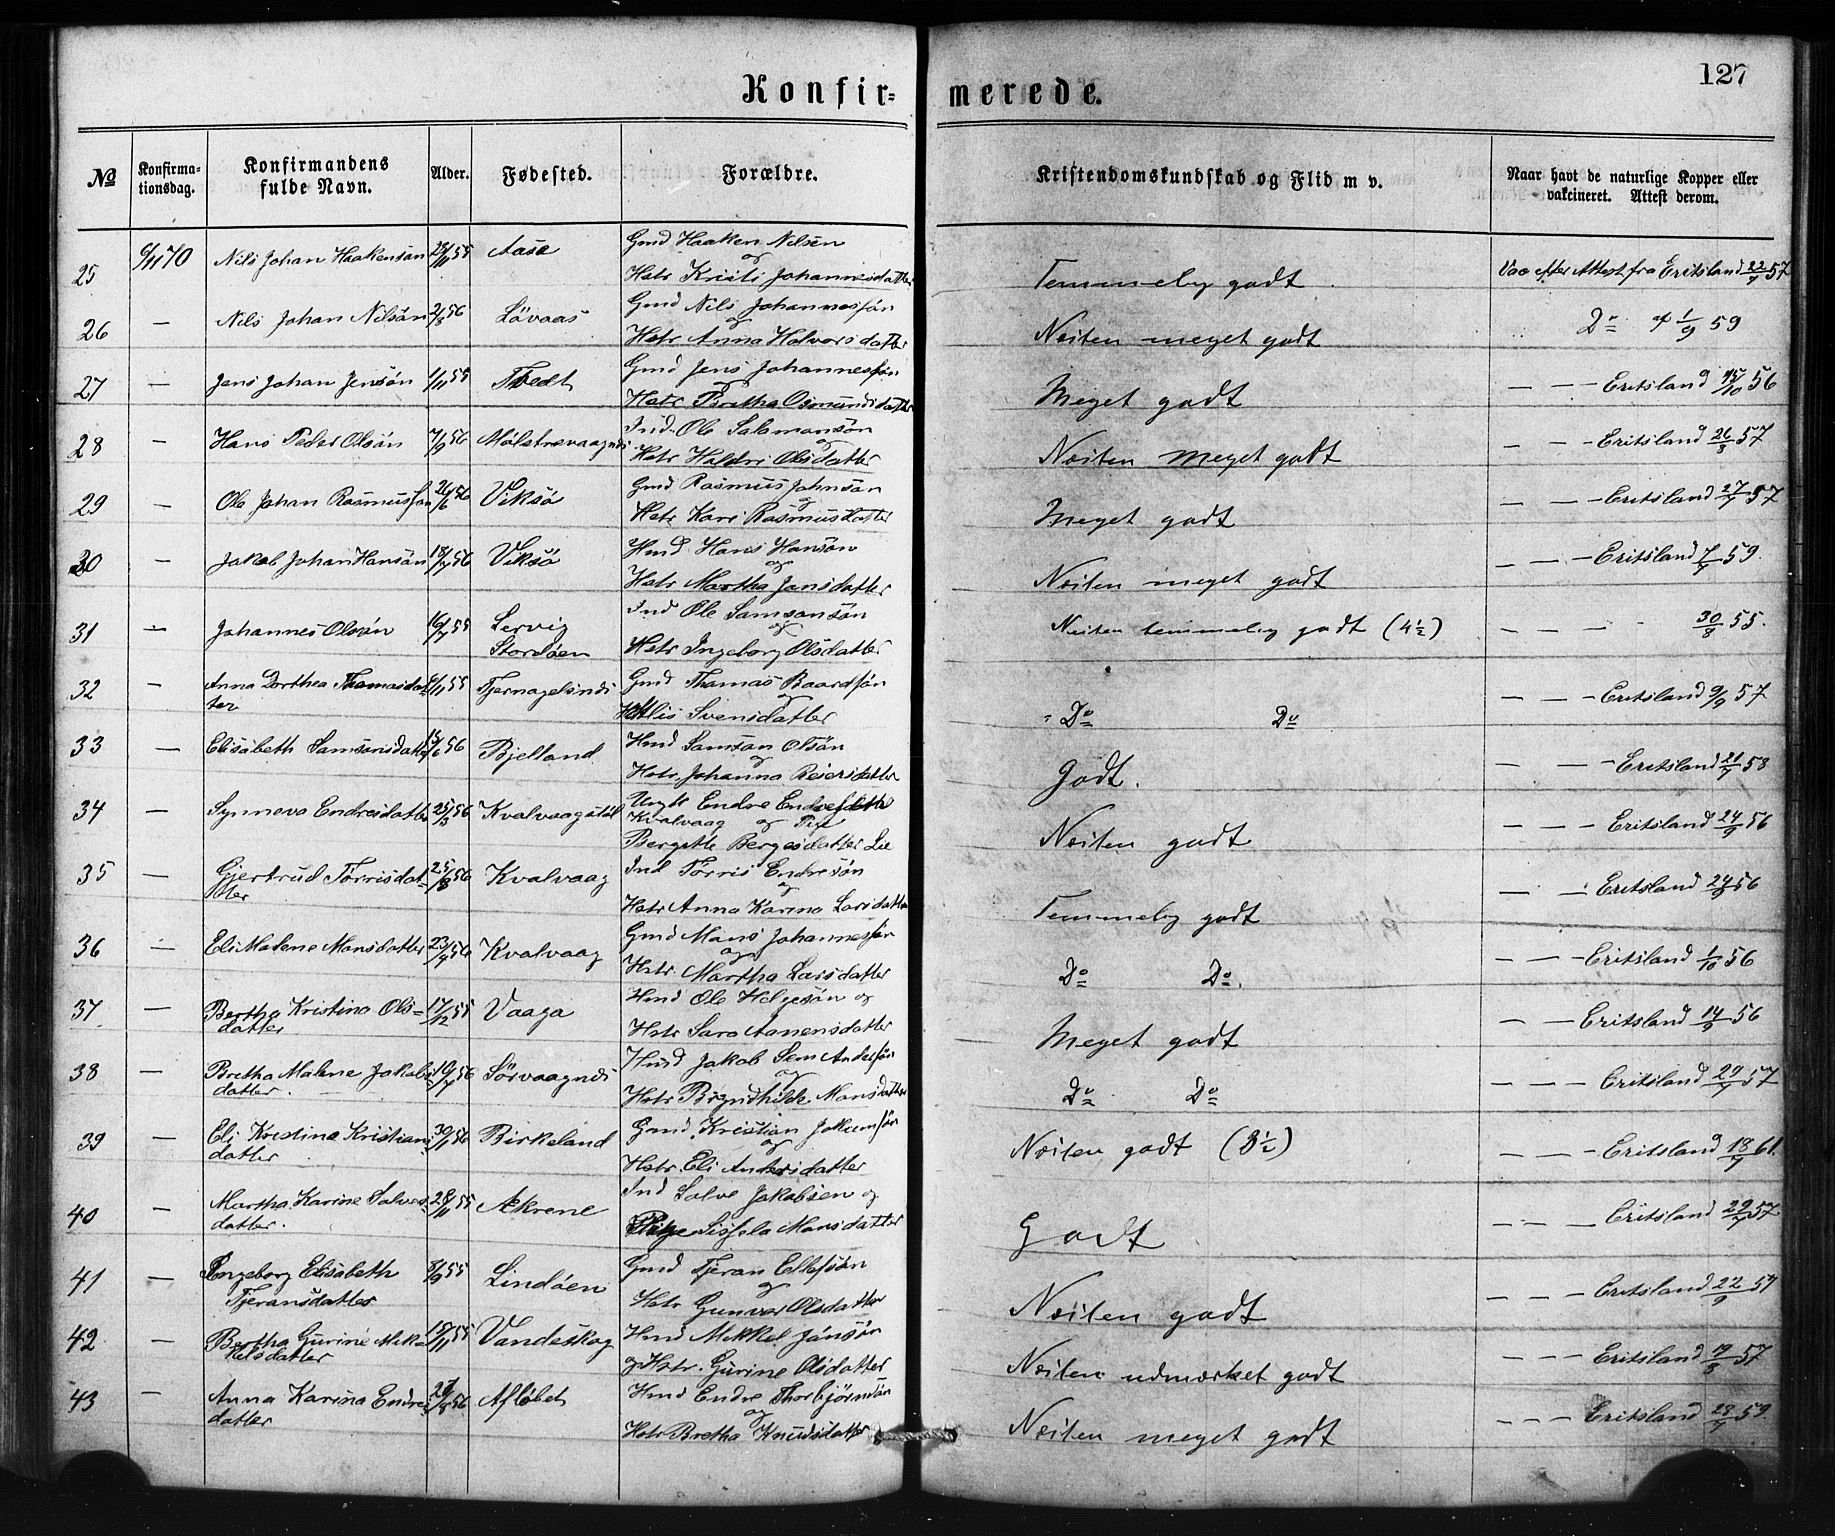 127
Konfir= merede.
№ Konfirma- tionsdag. Konfirmandens fulde Navn. Alder. Fødested. Forældre. Kristendomskundskab og Flid m v. Naar havt de naturlige Kopper eller vakcineret. Attest derom.
25 6/11 70 Nils Johan Haakensøn 29/11 55 Aasa Gmd Haaken Nilsen
og
Hstr Kristi Johannesdatter Temmelig godt. Vac efter Attest fra Eritsland 22/7 57
26 — Nils Johan Nilsøn 2/8 56 Løvaas Gmd Nils Johannesføn
og
Hstr Anna Halvorsdatter Næsten meget godt Do af 1/9 59
27 — Jens Johan Jensøn 1/11 55 Tvedt Gmd Jens Johannesføn
og
Hstr Bertha Osmundsdatter Meget godt — — — Eritsland 15/10 56
28 — Hans Peder Olsøn 7/9 56 Mølstrevaagnds. Ind. Ole Salamonsøn
og
Hstr Haldri Olsdatter Næsten meget godt — — — Eritsland 26/8 57
29 — Ole Johan Rasmusføn 26/6 56 Viksø Gmd Rasmus Johnsøn
og
Hstr Kari Rasmusdatter Meget godt — — — Eritsland 27/7 57
30 — Jakob Johan Hansøn 18/7 56 Viksø Hmd Hans Hansøn
og
Hstr Martha Jensdatter Næsten meget godt — — — Eritsland 7/7 59.
31 — Johannes Olsøn 16/7 55 Lervig
Stordøen Ind Ole Samsonsøn
og
Hstr Ingeborg Olsdatter Næsten temmelig godt (4½) — — — - 30/8 55.
32 — Anna Dorthea Thomasdat-
ter 6/11 55 Tjernagelsnds Gmd Thomas Baardføn
og
Hst Elis Svensdatter Do Do — — — Eritsland 9/9 57
33 — Elisabeth Samsonsdatter 15/6 56 Bjelland Hmd Samson Olsøn
og
Hstr. Johanna Reiersdatter Godt. — — — Eritsland 21/7 58
34 — Synneva Endresdatter 25/3 56 Kvalvaagstøl Ungk Endre
Kvalvaag og Pige
Bergitte Bergesdatter Lie Næsten godt — — — Eritsland 24/9 56
35 — Gjertrud Tørrisdat-
ter 25/8 56 Kvalvaag Ind Tørris Endresøn
og
Hstr Anna Karina Larsdatter Temmelig godt — — Eritsland 24/9 56
36 — Eli Malene Mansdatter 23/7 56 Kvalvaag Gmd Mans Johannesføn
og
Hstr. Martha Larsdatter Do Do. — — — Eritsland 1/10 56
37 — Bertha Kristina Ols=
datter 17/12 55 Vaaga Hmd Ole Helgesøn og
Hstr Sara Aanensdatter Meget godt — — Eritsland 14/9 56
38 — Bretha Malene Jakobs
datter. 10/7 56 Sørvaagnds Hmd Jakob Sem Andersføn
og
Hstr Bryndhilde Mansdatter Do Do — — — Eritsland 29/7 57
39 — Eli Kristina Kristians
datter. 30/1 56 Birkeland Gmd. Kristian Jokumføn
og
Hstr. Eli Andersdatter Næsten godt (3½) — — — Eritsland 18/7 61.
40 — Martha Karine Salves
datter. 28/11 55 Akrene Ind Salve Jakobsen og
Pige Sissela Mansdatter Godt — — — Eritsland 29/7 57
41 — Ingeborg Elisabeth
Tjeransdatter 8/9 55 Lindøen Gmd Tjeran Ellefsøn
og
Hstr Gunvor Olsdatter Næsten godt — — — Eritsland 22/9 57
42 — Bertha Gurine Mik-
kelsdatter 15/11 55 Vandeskog Hmd Mikkel Jonsøn
og Hstr. Gurine Olsdatter Næsten udmærket godt — — — Eritsland 19/8 57
43 — Anna Karina Endres
datter 27/8 56 Afløbet Hmd Endre Thorbjørnsøn
og
Hstr Bretha Knudsdatter Næsten meget godt — — — Eritsland 28/7 59.